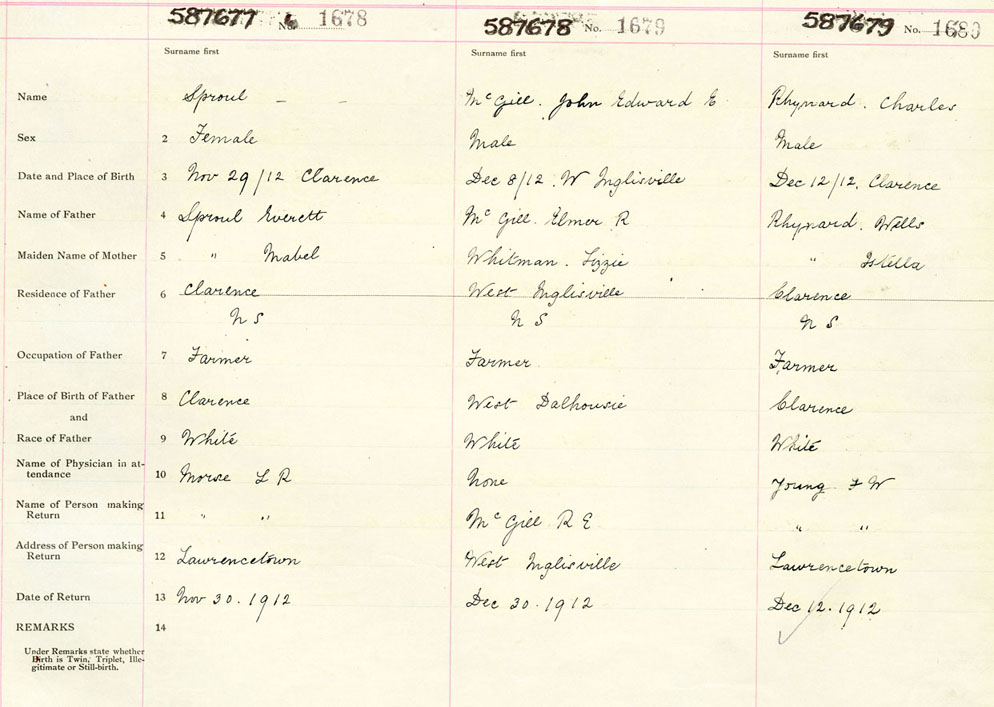 587677 No. 1678 587678 No. 1679 587679 No. 1680
Surname first Surname first Surname first
Name Sproul — — McGill. John Edward E. Rhynard. Charles
Sex 2 Female Male Male
Date and Place of Birth 3 Nov 29/12 Clarence Dec 8/12. W Inglisville Dec 12/12. Clarence
Name of Father 4 Sproul Everett McGill. Elmer R Rhynard. Wells
Maiden Name of Mother 5 " Mabel Whitman. Lizzie " Estella
Residence of Father 6 Clarence West Inglisville Clarence
N S N S N S
Occupation of Father 7 Farmer Farmer Farmer
Place of Birth of Father 8 Clarence West Dalhousie Clarence
and
Race of Father 9 White White White
Name of Physician in at-
tendance 10 Morse L R None Young F W
Name of Person making
Return 11 " " McGill R E " "
Address of Person making
Return 12 Lawrencetown West Inglisville Lawrencetown
Date of Return 13 Nov 30. 1912 Dec 30. 1912 Dec 12. 1912
REMARKS 14
Under Remarks state whether
Birth is Twin, Triplet, Ille-
gitimate or Still-birth.